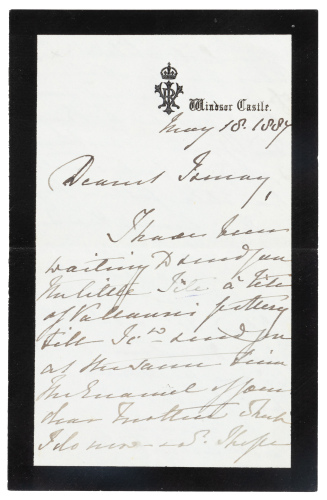 Windsor Castle.
May 18. 1887
Dearest
I have been
waiting to send you
the little Tête à tête
of Vallauris pottery
till I cd send you
at the same time
the Enamel of your
dear Mother's
I do now – & I hope